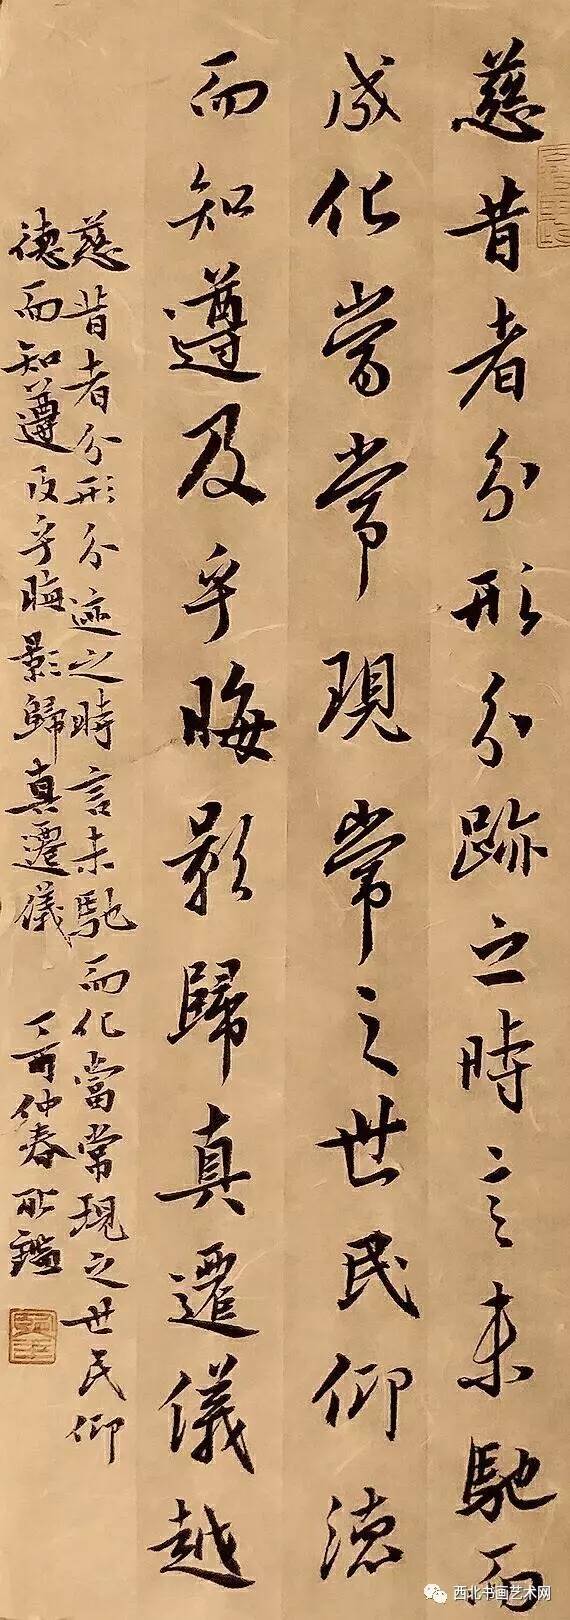 慈昔者分形分跡之時言未馳而
成化當常常現常之世民仰德
而知遵及乎晦影歸真遷儀越
慈昔者分形分迹之時言未馳而化當常現之世民仰
德而知遵及乎晦影歸真遷儀 丁酉仲春
西北书画艺术网